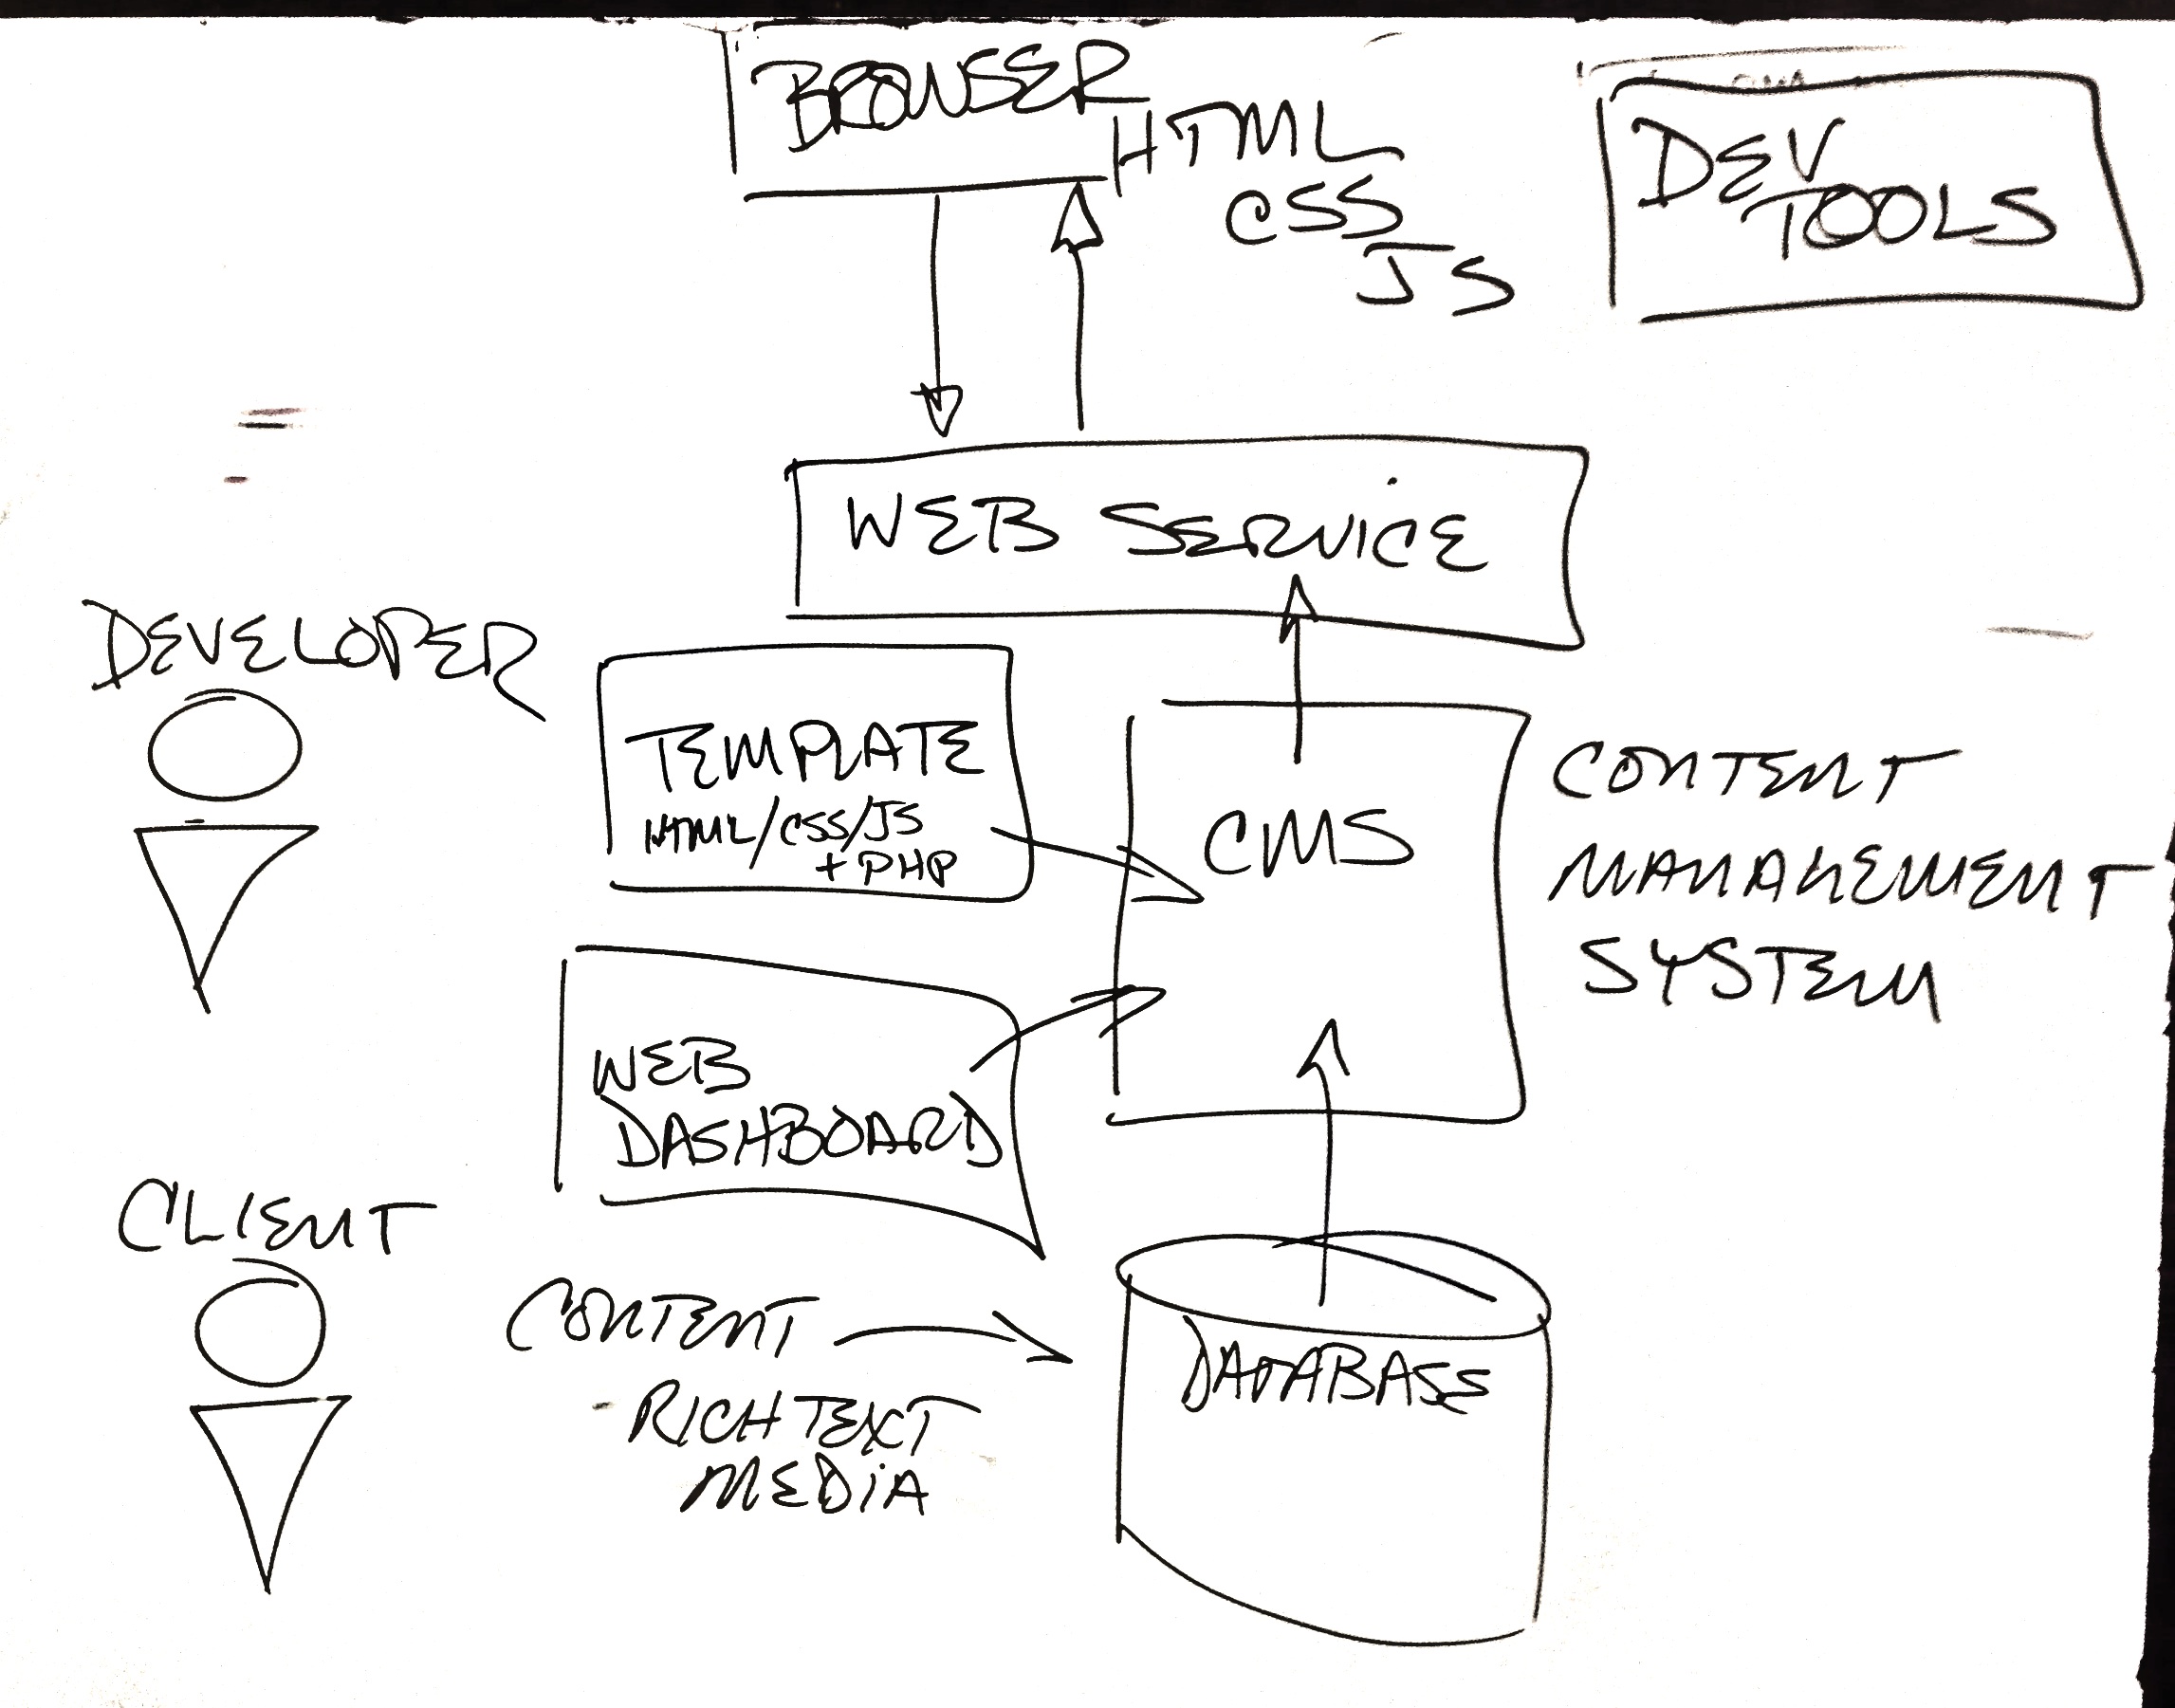 BROWSER
HTML
CSS
JS
DEV
TOOLS
WEB SERVICE
DEVELOPER
TEMPLATE
HTML/CSS/JS
+ PHP
CMS
CONTENT
MANAGEMENT
SYSTEM
WEB
DASHBOARD
CLIENT
CONTENT
RICH TEXT
MEDIA
DATABASE